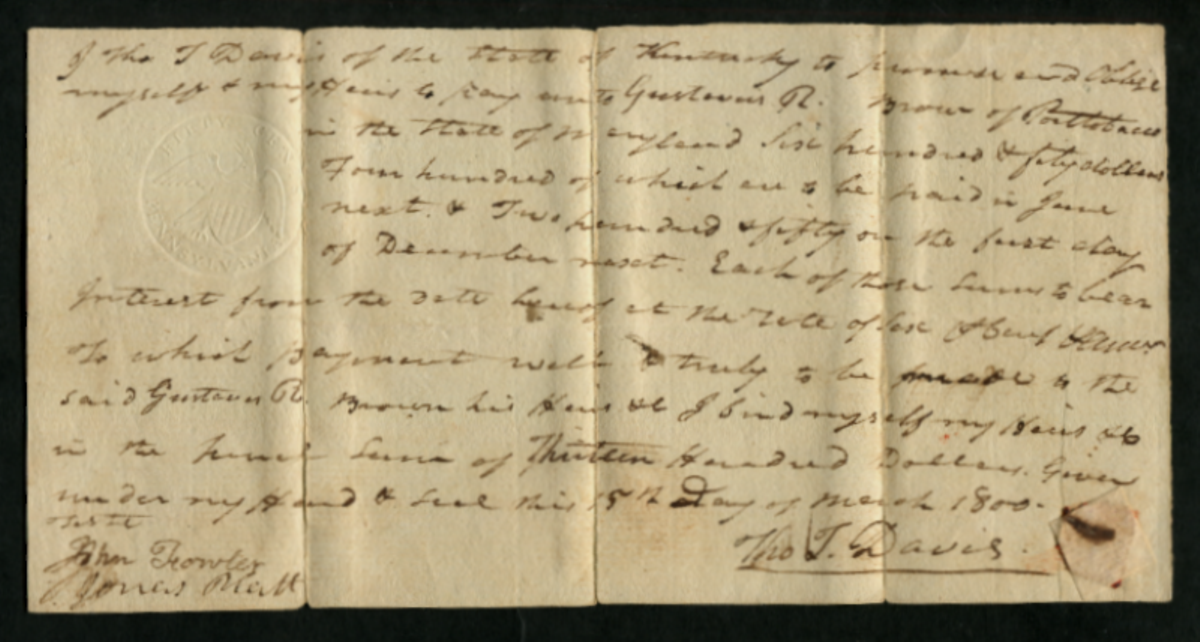 I Tho T Davis of the State of Kentucky do promise and Oblige
myself & my Heirs to pay unto Gustavus R. Brown of Porttobacco
in the State of Maryland Six hundred & fifty dollars
Four hundred of which are to be paid in June
next. & Two hundred & fifty on the first day
of December next. Each of those Sums to bear
Interest from the date hereof at the rate of Six
To which payment well & truly to be made to the
said Gustavus R. Brown his Heirs &c I bind myself my Heirs &c
in the penal Sum of Thirteen Hundred Dollars. Given
under my Hand & Seal this 15th Day of March 1800.
Teste
Tho T. Davis.
John Fowler
Jonas Platt
PENNSYLVANIA